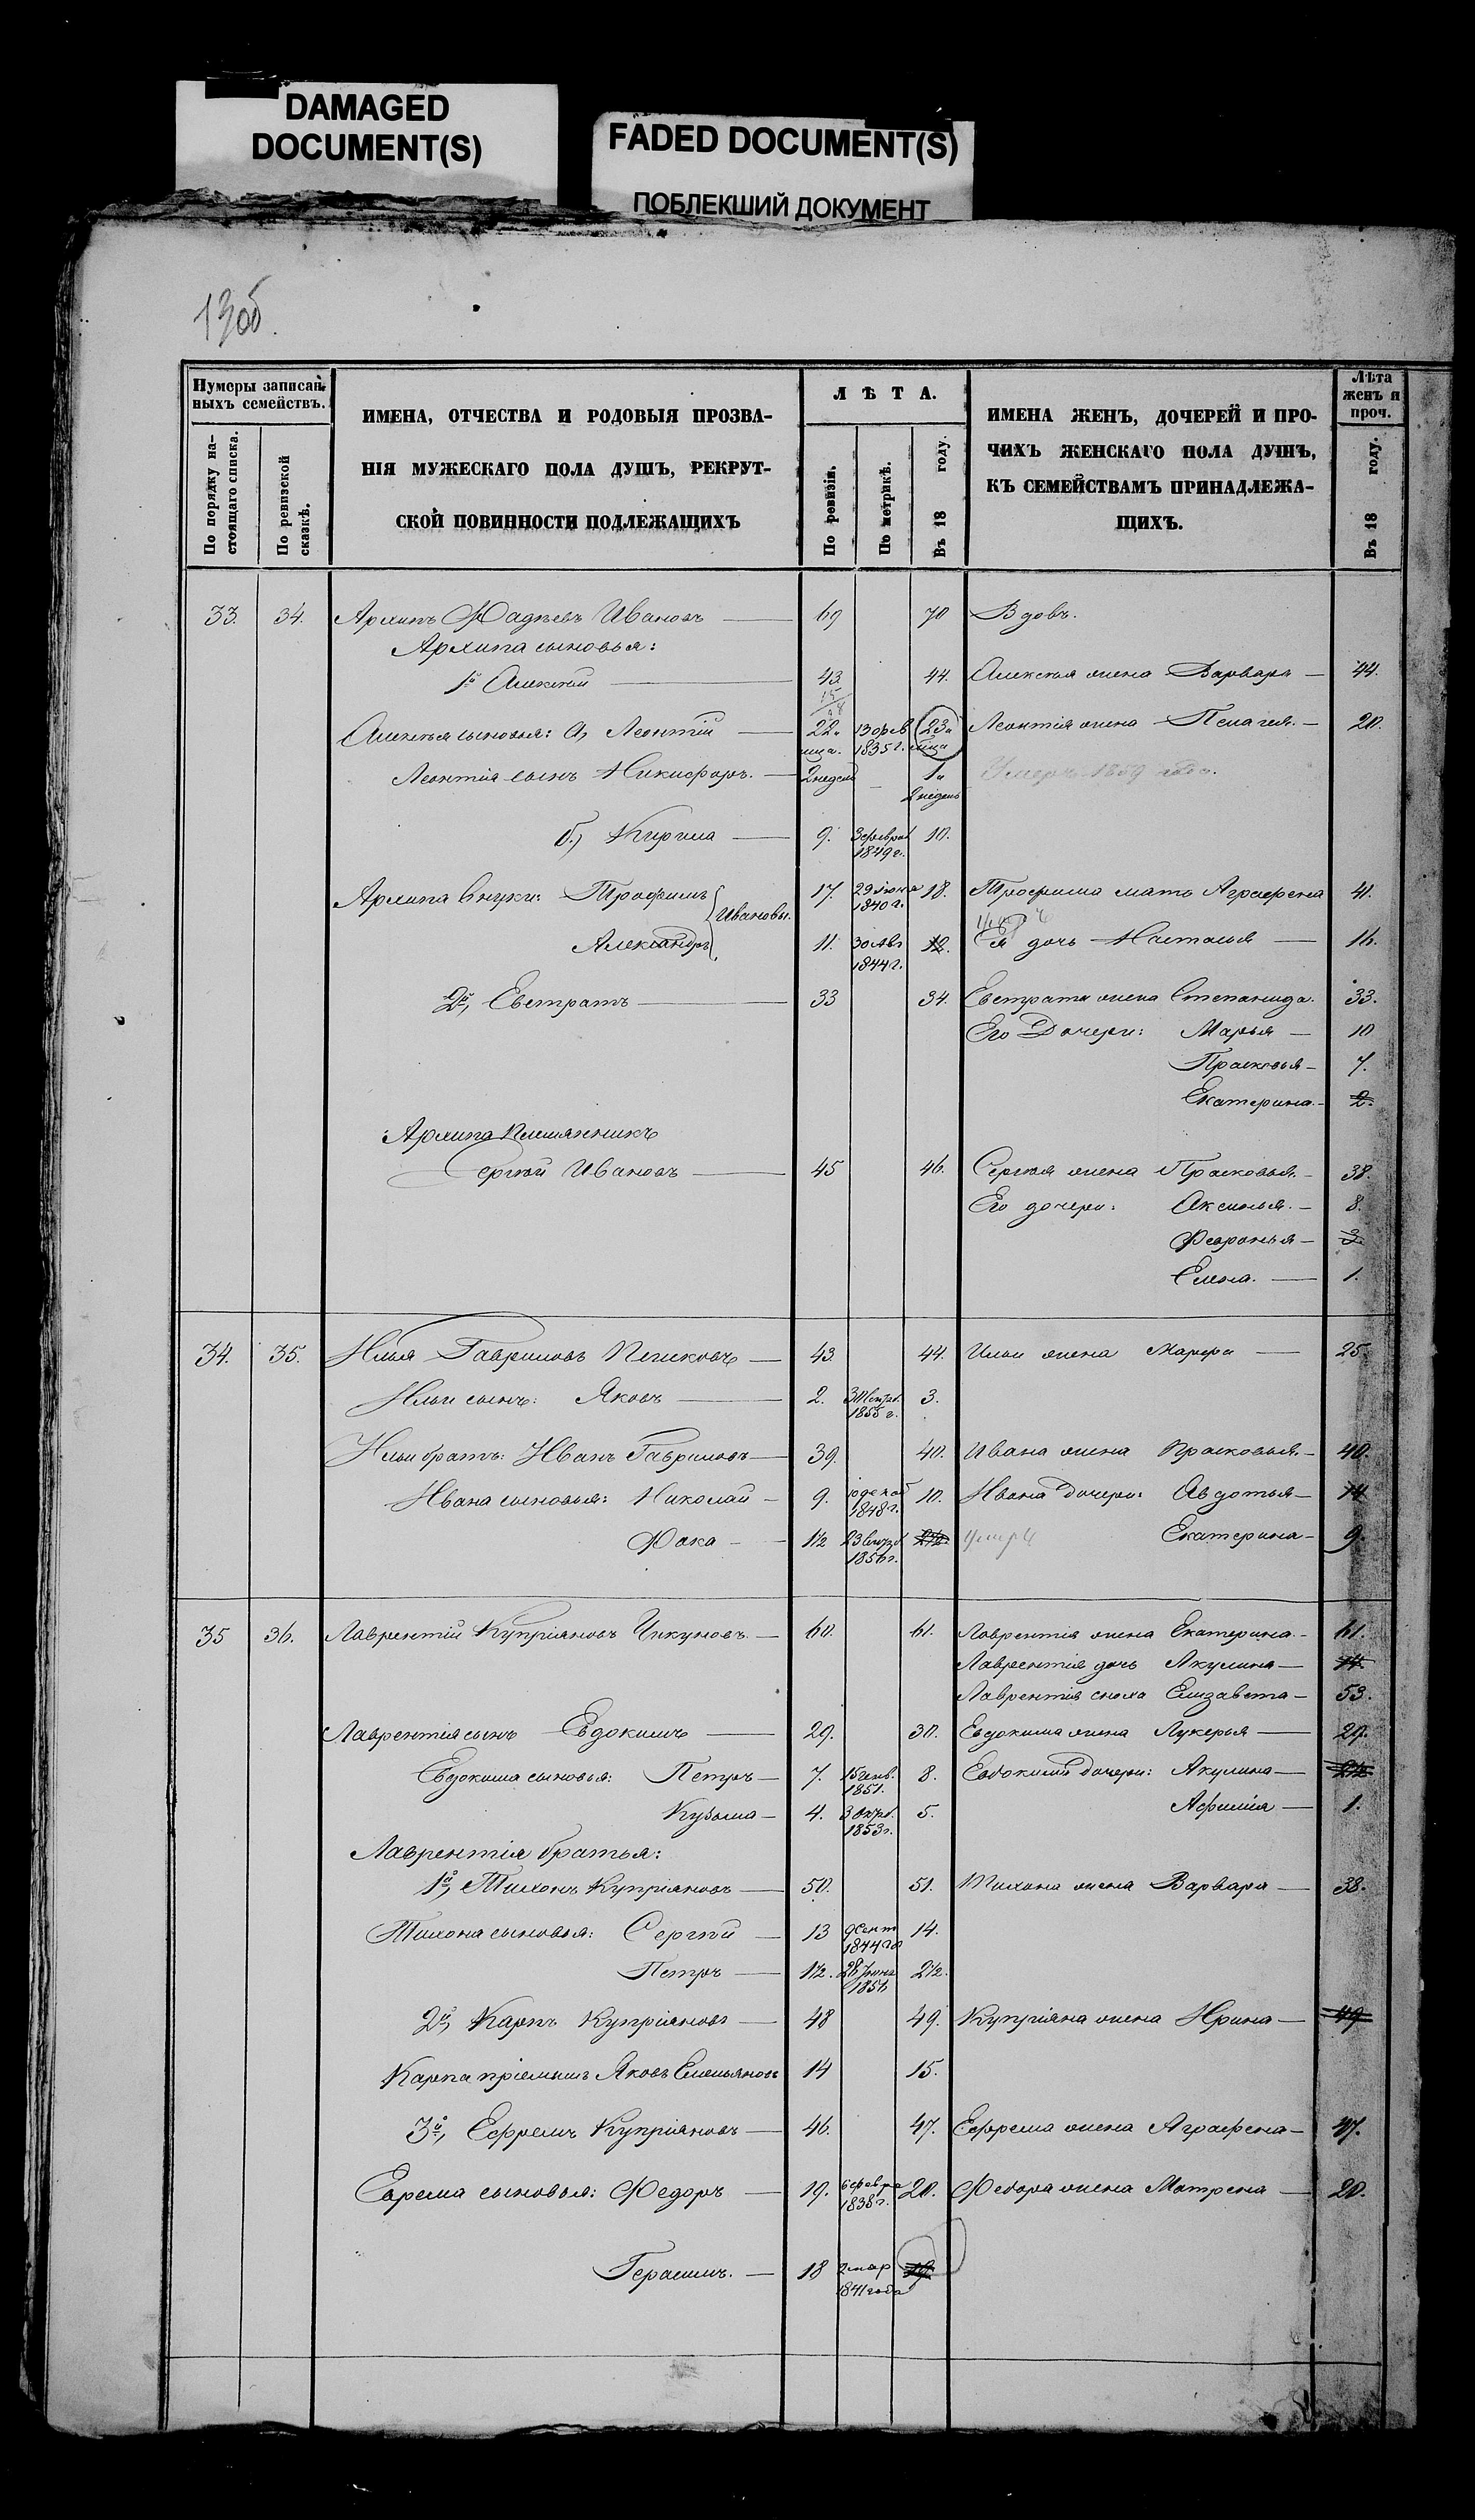 DAMAGED
DOCUMENT(S)
FADED DOCUMENT(S)
ПОБЛЕКШИЙ ДОКУМЕНТ
13об.
Нумеры записан-
ныхъ семействъ.
По порядку на-
стоящаго списка.
По ревизской
сказкѣ.
ИМЕНА, ОТЧЕСТВА И РОДОВЫЯ ПРОЗВА-
НІЯ МУЖЕСКАГО ПОЛА ДУШЪ, РЕКРУТ-
СКОЙ ПОВИННОСТИ ПОДЛЕЖАЩИХЪ
ЛѢТА.
По ревизіи.
По метрикѣ.
Въ 18 году.
ИМЕНА ЖЕНЪ, ДОЧЕРЕЙ И ПРО-
ЧИХЪ ЖЕНСКАГО ПОЛА ДУШЪ,
КЪ СЕМЕЙСТВАМЪ ПРИНАДЛЕЖА-
ЩИХЪ.
Лѣта
женъ и
проч.
Въ 18 году.
33. 34. Архипъ Фадѣевъ Ивановъ — 69 70 Вдовъ.
Архипа сыновья:
1й Алексѣй — 43. 44. Алексѣя жена Варвара — 44.
Алексѣя сыновья: а, Леонтій — 22. 13 фев 1835 г. 23. Леонтія жена Пелагея. — 20.
Леонтія сынъ Никифоръ. — 2 недел 1. 2 недель Умеръ 1859 года.
б,) Кирила — 9. 3 феврал 1849 г. 10.
Архипа внуки: Трофимъ Ивановы. 17. 29 Іюня 1840 г. 18. Трофима мать Аграфена 41.
Александръ 11. 30 Авг 1844 г. 12. Ея дочь Наталья — 16.
2й, Евстратъ — 33 34. Евстрата жена Степанида. 33.
Его Дочери: Марья — 10
Прасковья — 7.
Екатерина. — 2.
Архипа племянникъ
Сергѣй Ивановъ — 45 46. Сергѣя жена Прасковья. — 38.
Его дочери: Аксинья. — 8.
Февронья — 3.
Елена. — 1.
34. 35. Илья Гавриловъ — 43. 44. Ильи жена Марфа — 25.
Ильи сынъ: Яковъ — 2. 1855 г. 3.
Ильи братъ: Иванъ Гавриловъ — 39. 40. Ивана жена Прасковья. — 40.
Ивана сыновья: Николай — 9. 10 декаб 1848 г. 10. Ивана дочери: Авдотья — 14
Фока — 1½ 1856 г. 2½ умеръ Екатерина — 9.
35 36. Лаврентій Купріяновъ Чикуновъ. — 60. 61. Лаврентія жена Екатерина. — 61.
Лаврентія дочь Акулина — 14
Лаврентія сноха Елизавета — 53.
Лаврентія сынъ Евдокимъ — 29. 30. Евдокима жена Лукерья — 29.
Евдокима сыновья: Петръ — 7. 15 генв. 1851. 8. Евдокима дочери: Акулина — 2½
Кузьма — 4. 3 1853 г. 5. Афимія — 1.
Лаврентія братья:
1й, Тихонъ Купріяновъ — 50. 51. Тихона жена Варвара — 38.
Тихона сыновья: Сергѣй — 13 9 Сент 1844 14.
Петръ — 1½. 28 Іюня 2½.
2й, Карпъ Купріяновъ — 48 49. Купріяна жена Ирина — 49
Карпа пріемышъ Яковъ Емельяновъ 14 15.
3й, Ефремъ Купріяновъ — 46. 47. Ефрема жена Аграфена — 47.
Ефрема сыновья: Федоръ — 19. 6 февра 1838 г. 20. Федора жена Матрена — 20.
Герасимъ. — 18 2 мар 1841 года 19.